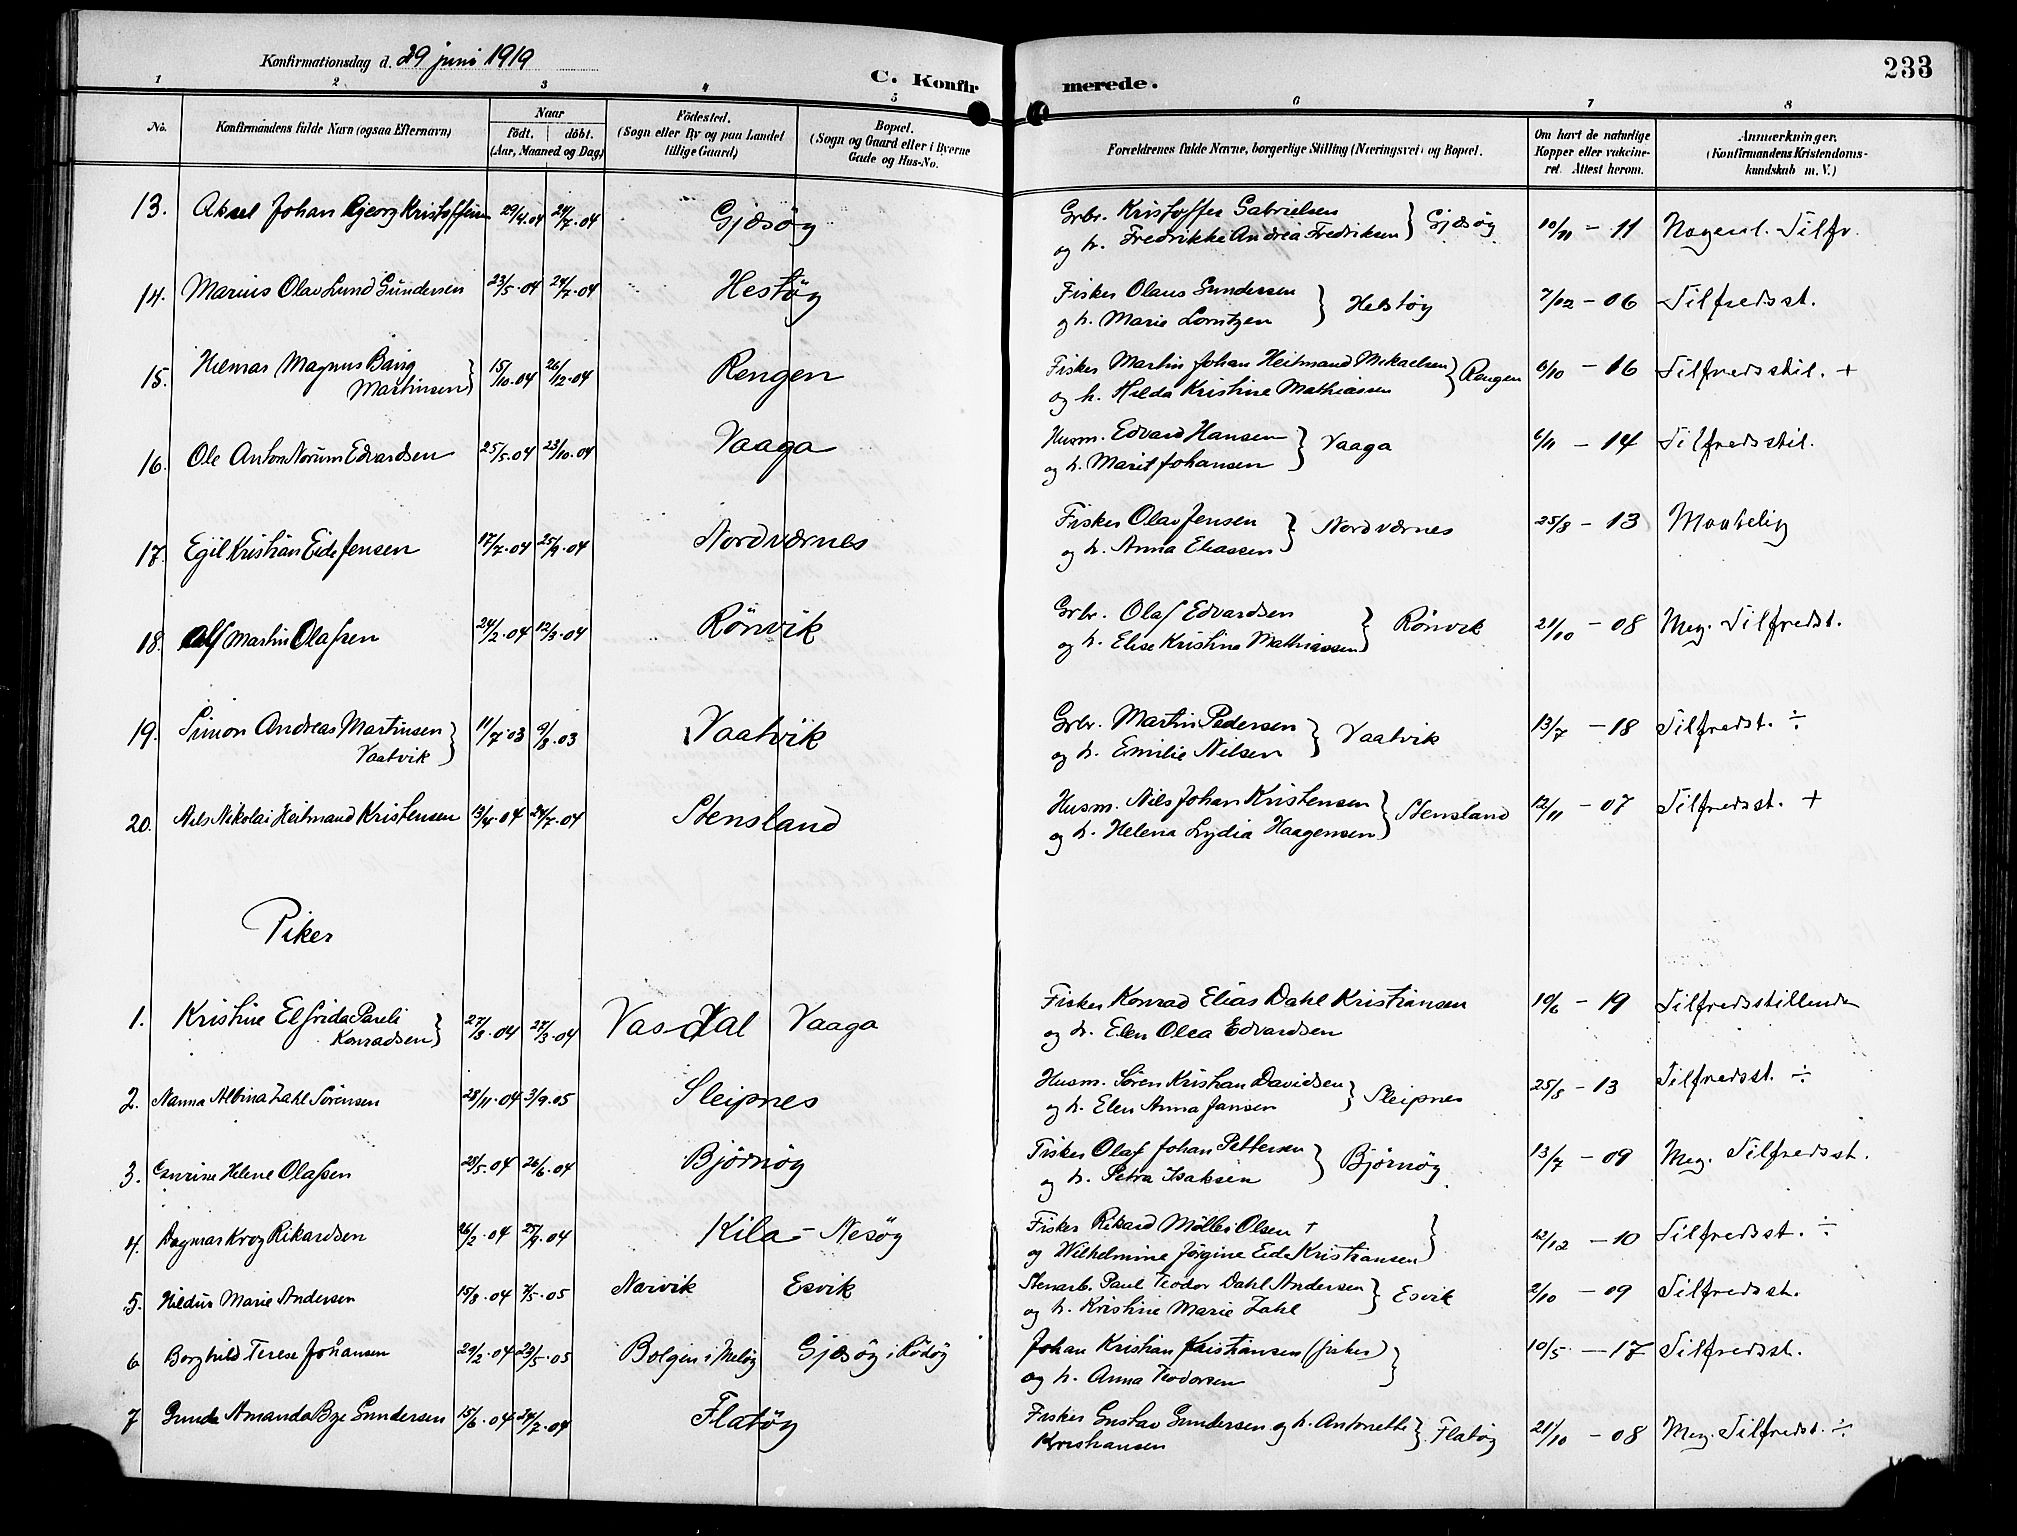 Konfirmationsdag d. 29 juni 1919
C. Konfirmerede.
233
1 2 3 4 5 6 7 8
No. Konfirmandens fulde Navn (ogsaa Efternavn) Naar født. døbt. (Aar, Maaned og Dag) Fødested. (Sogn eller By og paa Landet tillige Gaard) Bopæl. (Sogn og Gaard eller i Byerne Gade og Hus-No. Forældrenes fulde Navne, borgerlige Stilling (Næringsvei) og Bopæl. Om havt de naturlige Kopper eller vakcineret. Attest herom. Anmærkninger. (Konfirmandens Kristendomskundskab m. V.)
13. Aksel Johan Bjerg Kristoffersen 29/4.04 24/7.04 Gjæsøy Grbr. Kristoffer Gabrielsen
og h. Fredrikke Andrea Fredriksen } Gjæsøy 10/11 - 11 Nogenl. Tilfr.
14. Marius Olav Lund Gundersen 23/5.04 24/7.04 Hestøy Fisker Olaus Gundersen
og h. Marie Lorntzen } Hestøy 7/02 - 06 Tilfredsst.
15. Hilmar Magnus Bang
Martinsen } 15/10.04 26/12.04 Rengen Fisker Martin Johan Heitmand Mikaelsen
og h. Hilda Kristine Mathiassen } Rengen 6/10 - 16 Tilfredsstil. +
16. Ole Anton Norum Edvardsen 25/5.04 23/10.04 Vaaga Husm. Edvard Hansen
og h. Marit Johansen } Vaaga 6/11 - 14 Tilfredsstil.
17. Egil Kristian Eide Jensen 17/7.04 25/9.04 Nordværnes Fisker Olav Jensen
og h. Anna Eliassen } Nordværnes 25/8 - 13 Maatelig
18. Alf Martin Olafsen 24/2.04 12/3.04 Rönvik Grbr. Olaf Edvardsen
og h. Elise Kristine Mathiassen } Rønvik 21/10 - 08 Meg. Tilfredst.
19. Simon Andreas Martinsen
Vaatvik } 11/7.03 9/8.03 Vaatvik Grbr. Martin Pedersen
og h. Emilie Nilsen } Vaatvik 13/7 - 18 Tilfredst. ÷
20. Nils Nikolai Heitmand Kristensen 13/4.04 24/7.04 Stensland Husm. Nils Johan Kristensen
og h. Helena Lydia Haagensen } Stensland 12/11 - 07 Tilfredsst. +
Piker
1. Kristine Elfrida Pareli
Konradsen } 27/3.04 27/3.04 Vasdal Vaaga Fisker Konrad Elias Dahl Kristiansen
og h. Elen Olea Edvardsen 10/6 - 19 Tilfredsstillende
2. Nanna Albina Zahl Sörensen 28/11.04 3/9.05 Sleipnes Husm. Søren Kristian Davidsen
og h. Elen Anna Jansen } Sleipnes 25/8 - 13 Tilfredsst. ÷
3. Helene Olafsen 28/5.04 26/6.04 Bjørnøy Fisker Olaf Johan Pettersen
og h. Petra Isaksen } Bjørnøy 13/7 - 09 Meg. Tilfredsst.
4. Dagmar Krog Rikardsen 26/2.04 25/9.04 Kila - Nesøy Fisker Rikard Möller Olsen †
og Wilhelmine Jørgine Eide Kristiansen } 12/12 - 10 Tilfredsst. ÷
5. Hildur Marie Andersen 15/8.04 7/5.05 Narvik Esvik Stenarb. Paul Teodor Dahl Andersen
og h. Kristine Marie Zahl } Esvik 2/10 - 09 Tilfredsst.
6 Borghild Terese Johansen 29/2.04 23/5.05 Bolgen i Meløy Gjæsöy i Rödøy Johan Kristian Kristiansen (fisker)
og h. Anna Teodorsen } 10/5 - 17 Tilfredsst.
7 Gunda Amanda Bye Gundersen 15/6.04 24/7.04 Flatøy Fisker Gustav Gundersen og h. Antonette
Kristiansen } Flatøy 21/10 - 08 Meg. Tilfredst. ÷